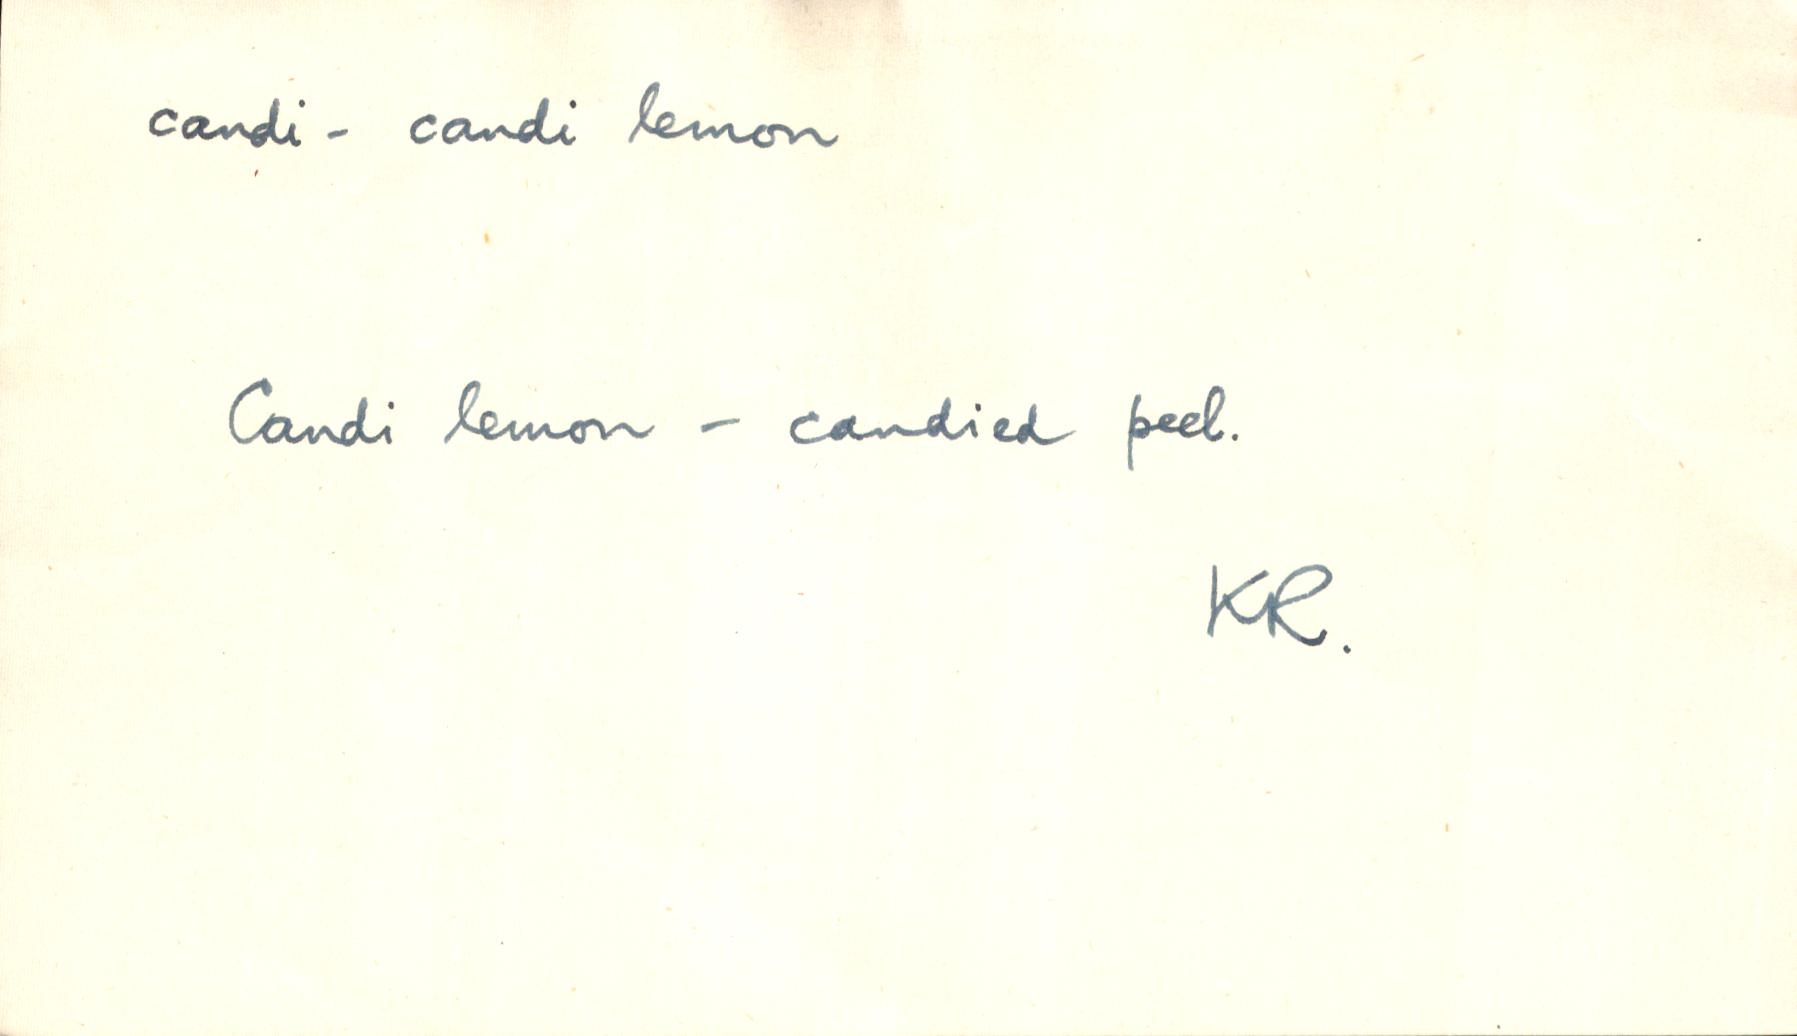 candi - candi lemon
Candi lemon - candied peel.
KR.